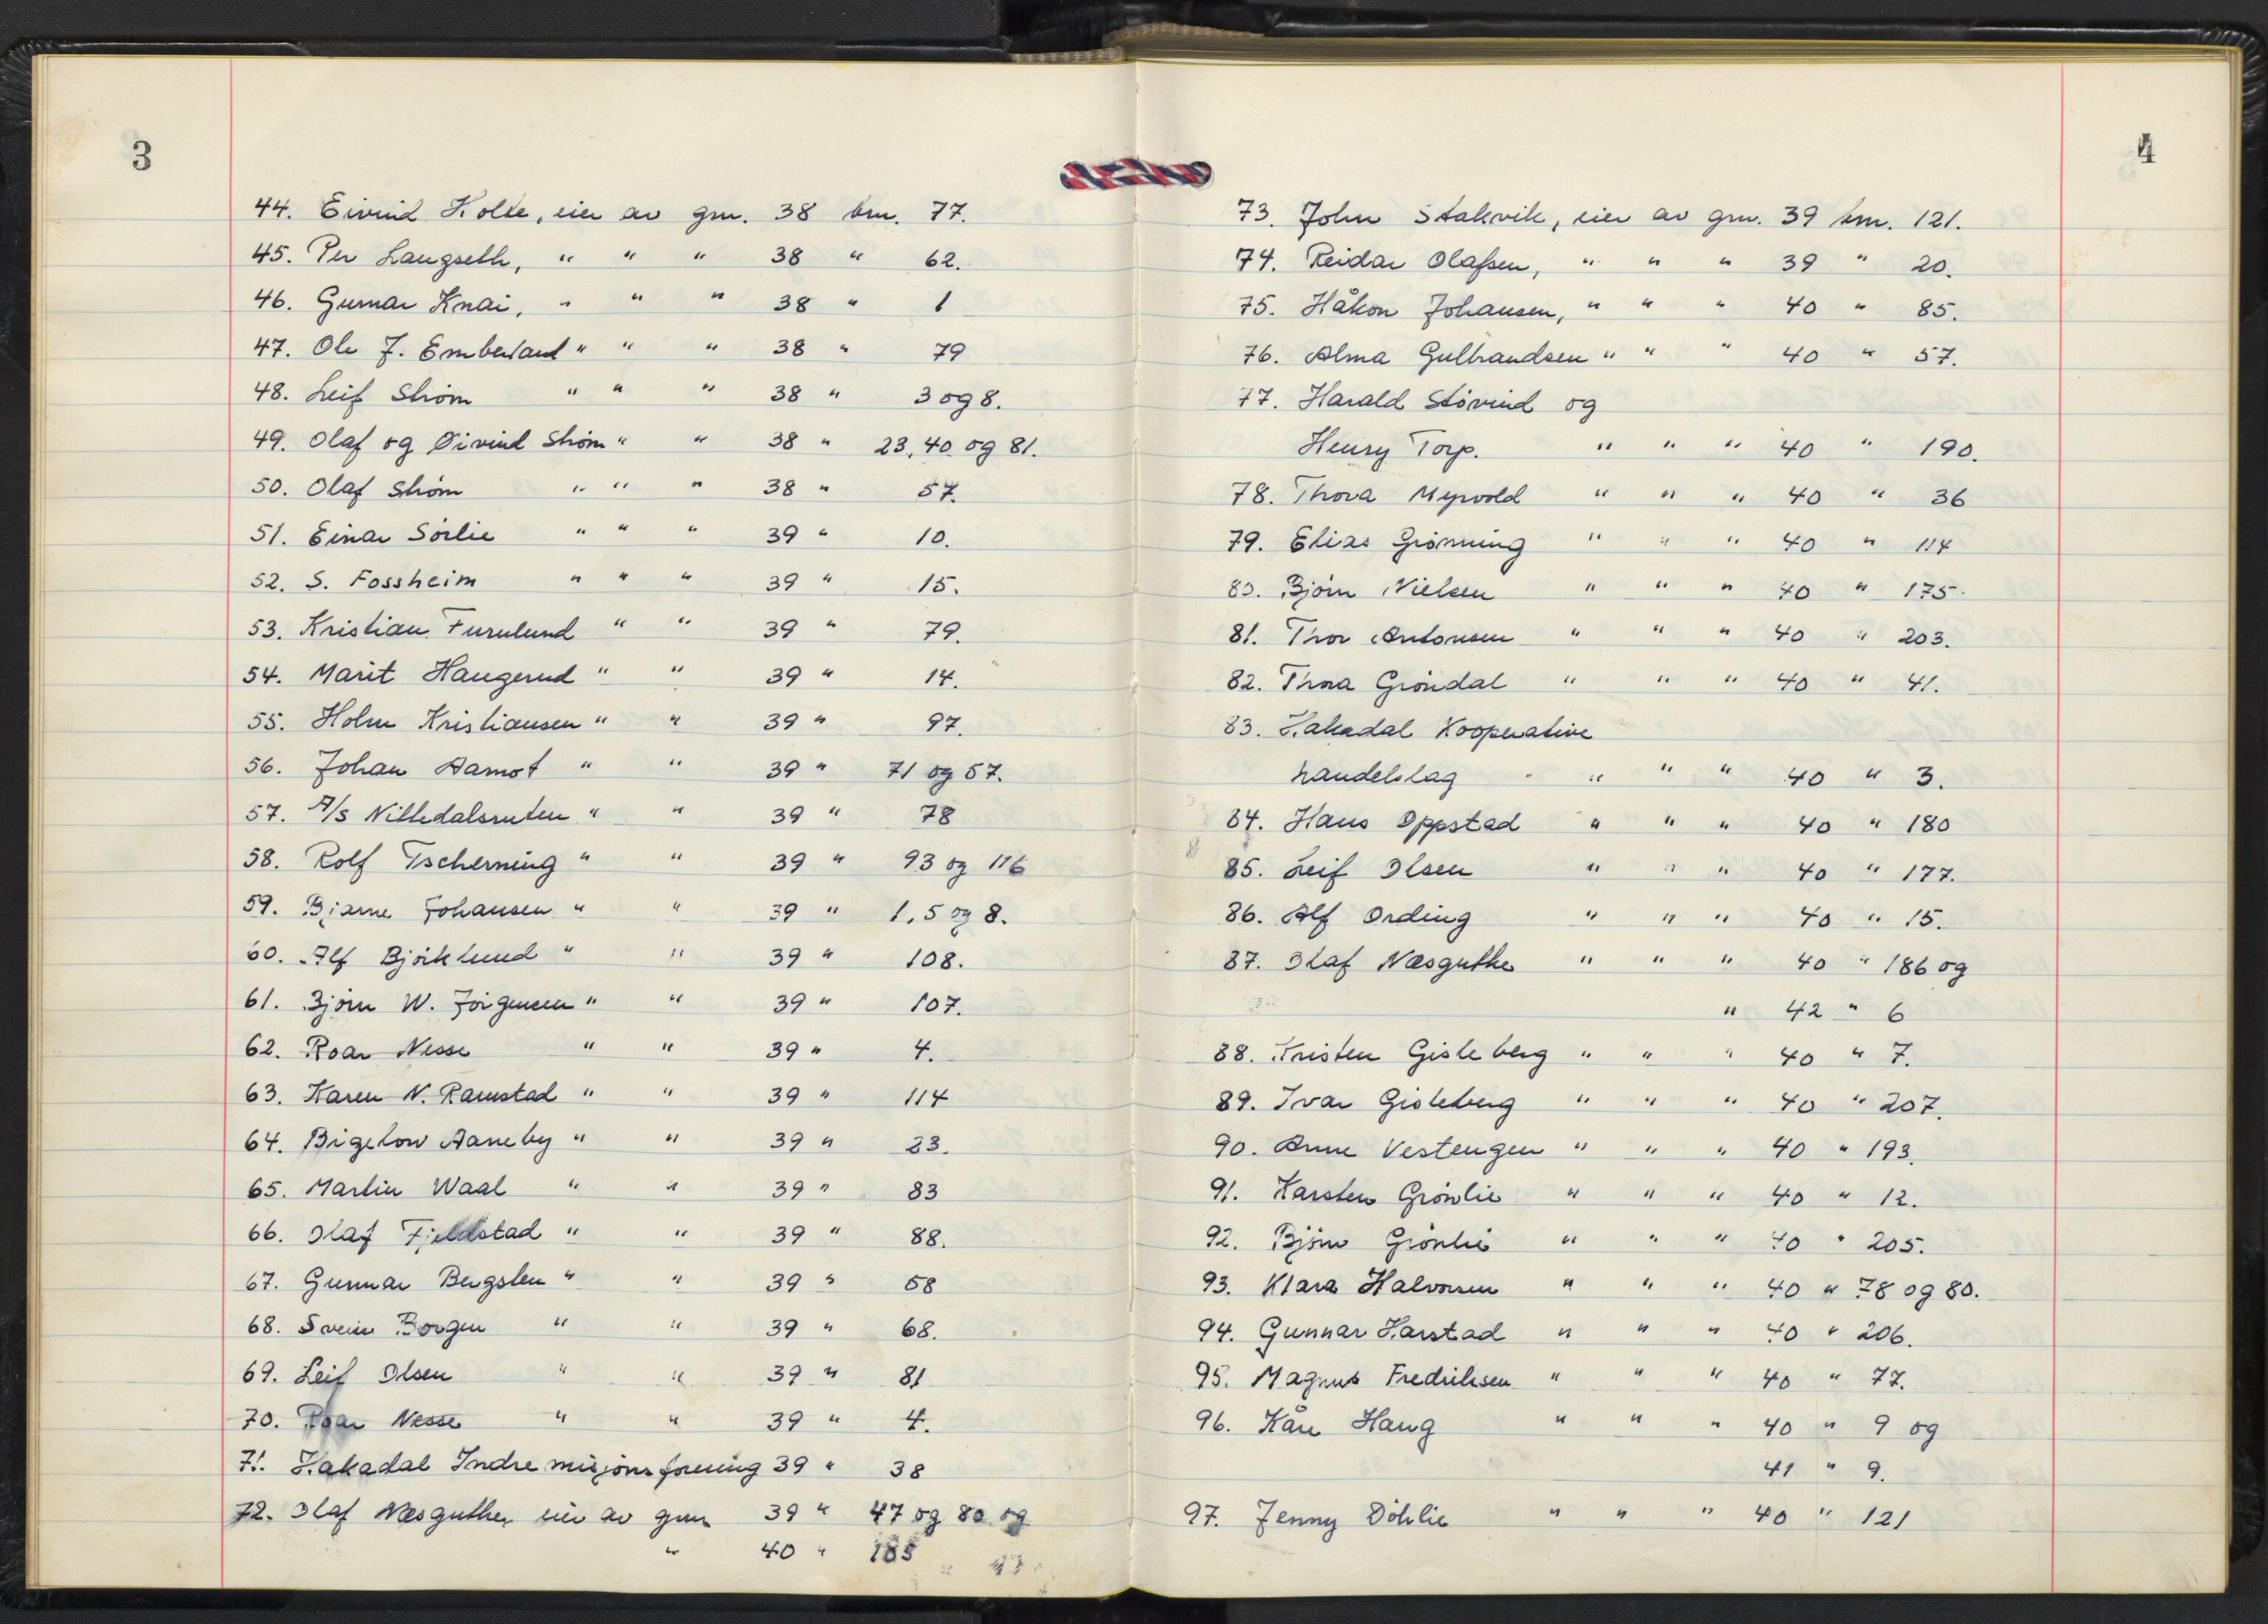 3
44. Eivind Holte, eier av gnr. 38 bnr. 77.
45. Per Langseth, " " " 38 " 62.
46. Gunnar Knai, " " " 38 " 1
47. Ole J. Emberland " " " 38 " 79
48. Leif Strøm " " " 38 " 3 og 8.
49. Olaf og Øivind Strøm " " 38 " 23, 40 og 81.
50. Olaf Strøm " " " 38 " 57.
51. Einar Sörlie " " " 39 " 10.
52. S. Fossheim " " " 39 " 15.
53. Kristian Furulund " " 39 " 79.
54. Marit Haugerud " " 39 " 14.
55. Holm Kristiansen " " 39 " 97.
56. Johan Aamot " " 39 " 71 og 57.
57. A/S Nittedalsruten " " 39 " 78
58. Rolf Tscherning " " 39 " 93 og 116
59. Bjarne Johansen " " 39 " 1, 5 og 8.
60. Alf Björklund " " 39 " 108.
61. Björn W. Jörgensen " " 39 " 107.
62. Roar Nesse " " 39 " 4.
63. Karen N. Ramstad " " 39 " 114
64. Bigelow Aaneby " " 39 " 23.
65. Martin Waal " " 39 " 83
66. Olaf Fjeldstad " " 39 " 88.
67. Gunnar Bergsten " " 39 " 58
68. Svein Borgen " " 39 " 68.
69. Leif Olsen " " 39 " 81
70. Roar Nesse " " 39 " 4.
71. Hakadal Indremisjonsforening 39 " 38
72. Olaf Næsguthe, eier av gnr 39 " 47 og 80 og
" 40 " 185
4
73. John Stakvik, eier av gnr. 39 bnr. 121.
74. Reidar Olafsen, " " " 39 " 20.
75. Håkon Johansen, " " " 40 " 85.
76. Alma Gulbrandsen " " " 40 " 57.
77. Harald Stövind og
Henry Torp. " " " 40 " 190.
78. Thora Myrvold " " " 40 " 36
79. Elias Grönning " " " 40 " 114
80. Björn Nielsen " " " 40 " 175.
81. Thor Antonsen " " " 40 " 203.
82. Thora Gröndal " " " 40 " 41.
83. Hakadal Kooperative
handelslag " " " 40 " 3.
84. Hans Oppstad " " " 40 " 180
85. Leif Olsen " " " 40 " 177.
86. Alf Ording " " " 40 " 15.
87. Olaf Næsguthe " " " 40 " 186 og
" 42 " 6
88. Kristen Gisleberg " " " 40 " 7.
89. Ivar Gisleberg " " " 40 " 207.
90. Anne Vestengen " " " 40 " 193.
91. Karsten Grönlie " " " 40 " 12.
92. Björn Grönlie " " " 40 " 205.
93. Klara Halvorsen " " " 40 " 78 og 80.
94. Gunnar Harstad " " " 40 " 206.
95. Magnus Fredriksen " " " 40 " 77.
96. Kåre Haug " " " 40 " 9 og
41 " 9.
97. Jenny Döhlie " " " 40 " 121